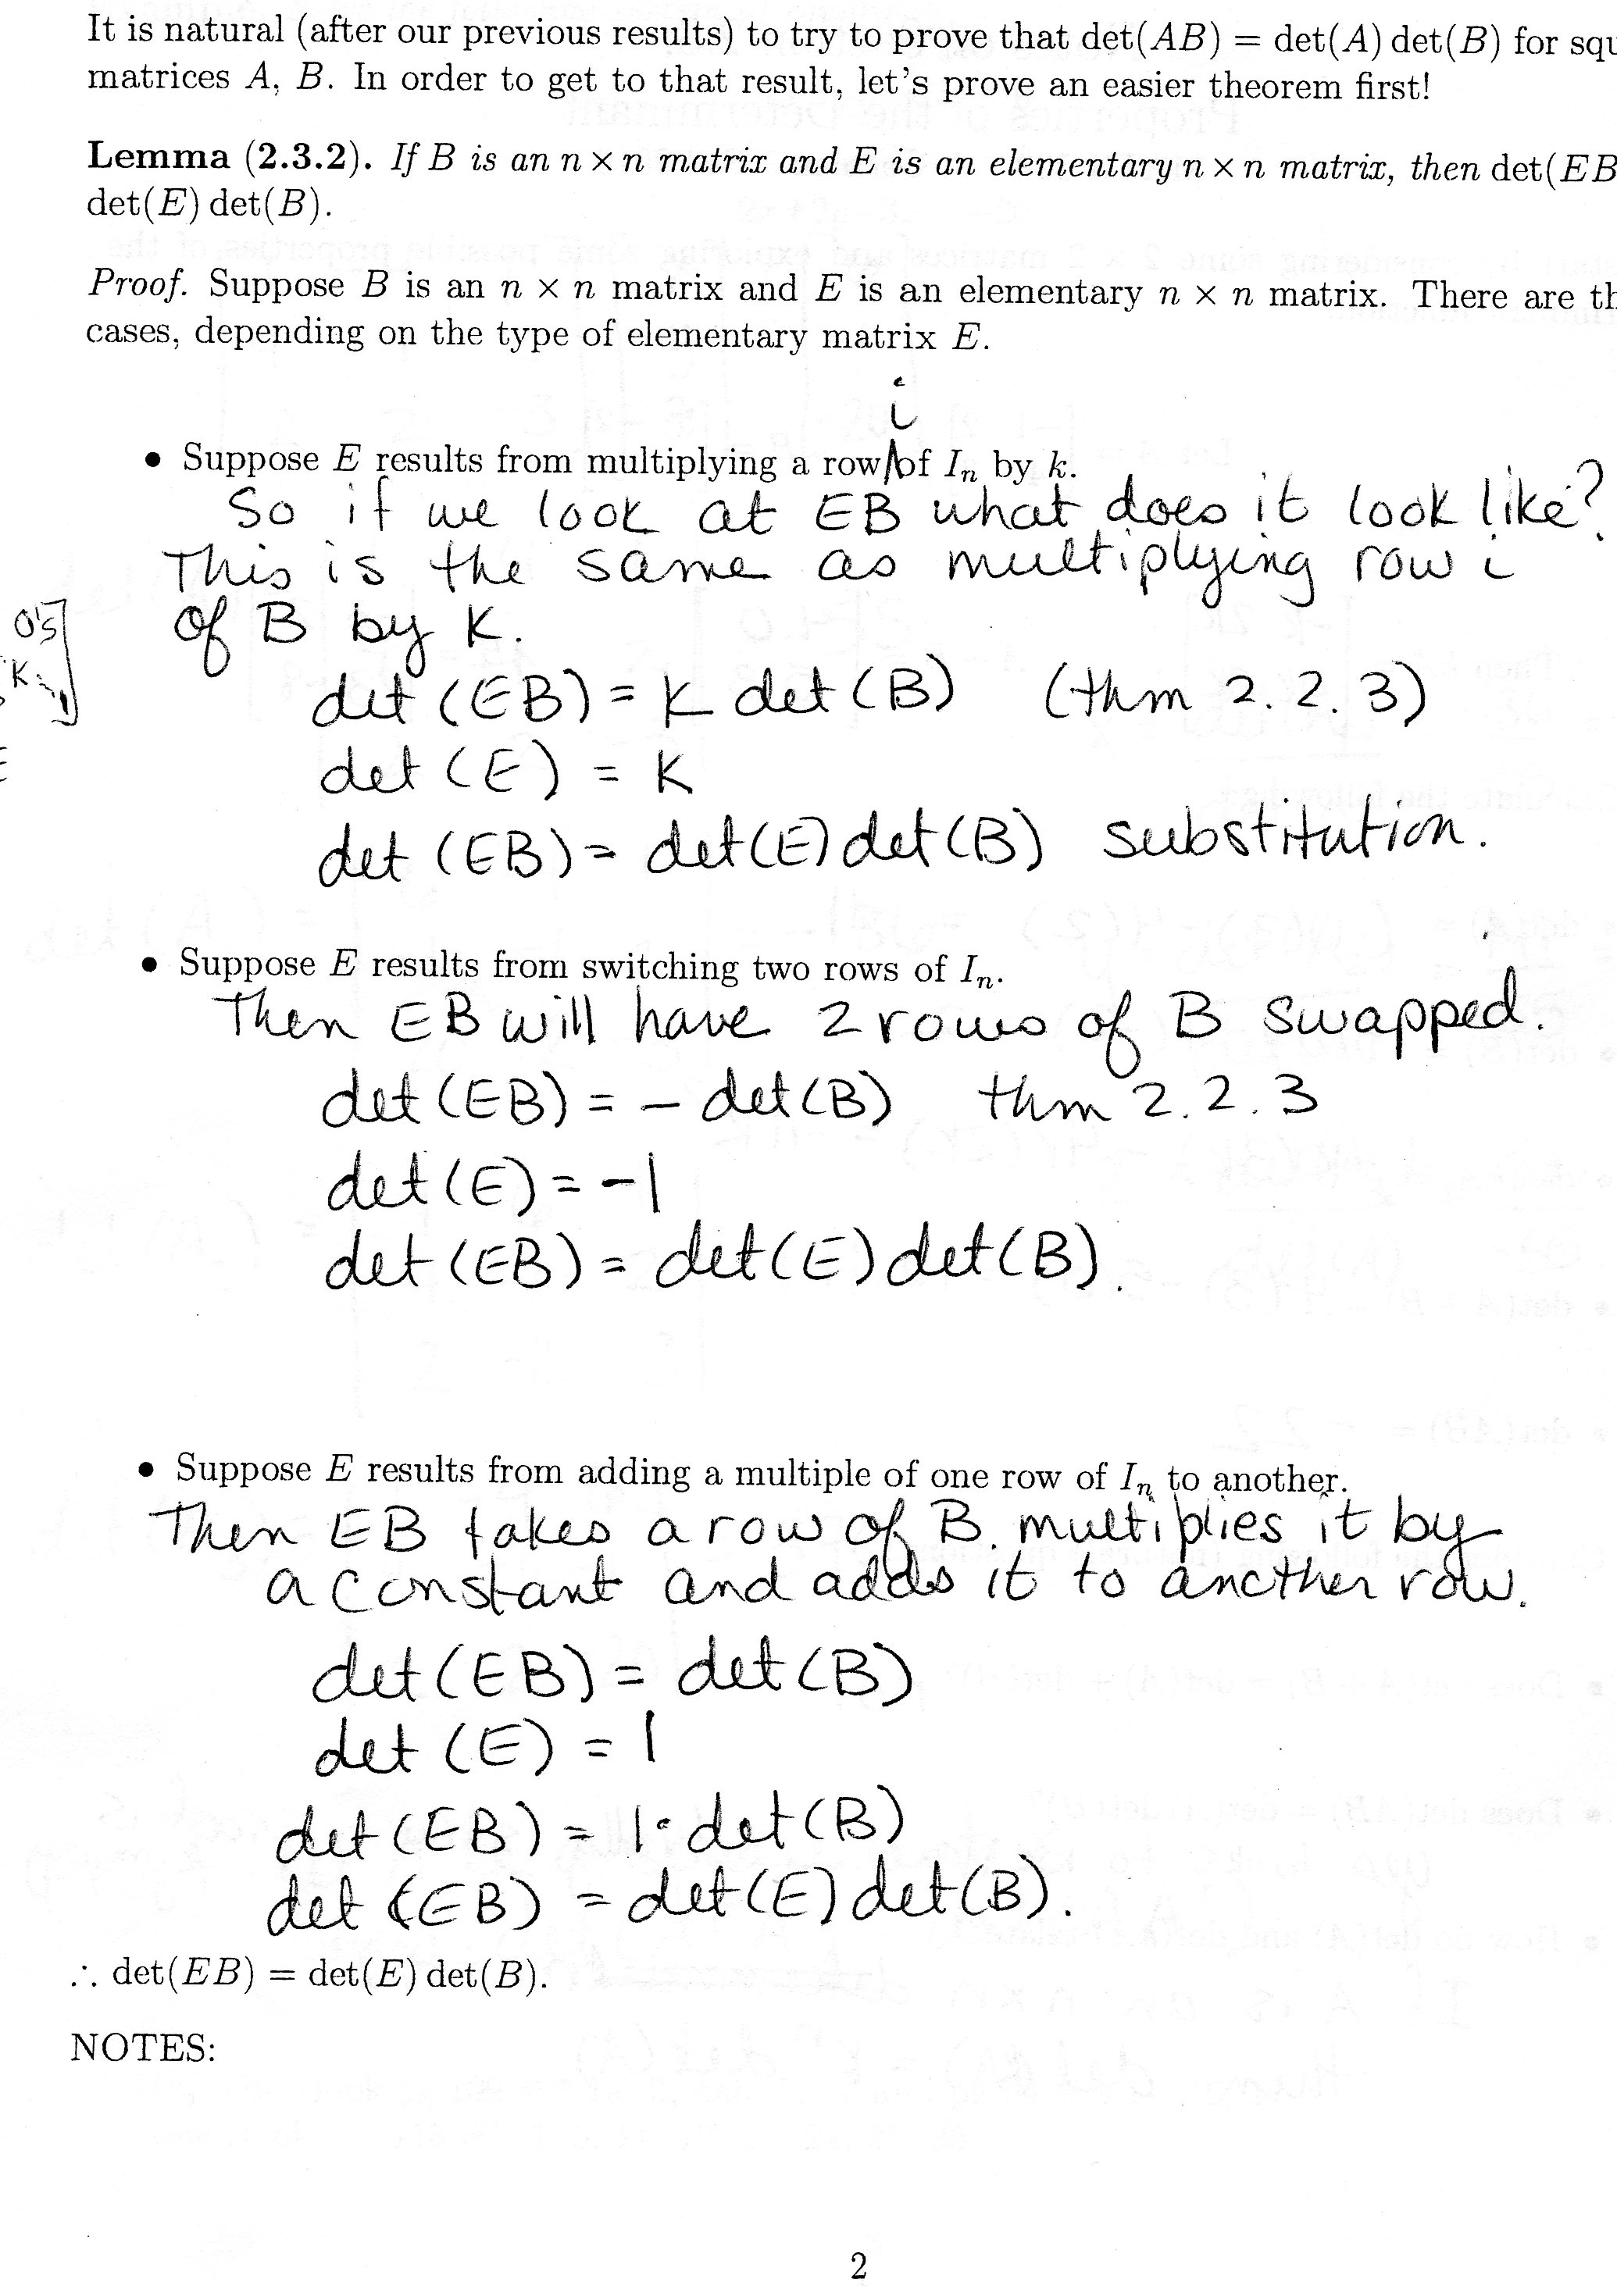 It is natural (after our previous results) to try to prove that det(AB) = det(A) det(B) for squ
matrices A, B. In order to get to that result, let's prove an easier theorem first!
Lemma (2.3.2). If B is an n × n matrix and E is an elementary n × n matrix, then det(EB
det(E) det(B).
Proof. Suppose B is an n × n matrix and E is an elementary n × n matrix. There are th
cases, depending on the type of elementary matrix E.
i
• Suppose E results from multiplying a row of Iₙ by k.
So if we look at EB what does it look like?
This is the same as multiplying row i
of B by K.
0's
K
1
det (EB) = K det (B) (thm 2.2.3)
det (E) = K
det (EB) = det(E) det(B) substitution.
• Suppose E results from switching two rows of Iₙ.
Then EB will have 2 rows of B swapped.
det (EB) = - det(B) thm 2.2.3
det (E) = -1
det (EB) = det(E) det(B).
• Suppose E results from adding a multiple of one row of Iₙ to another.
Then EB takes a row of B. multiplies it by
a constant and adds it to another row.
det (EB) = det (B)
det (E) = 1
det (EB) = 1·det (B)
det (EB) = det(E) det(B).
∴ det(EB) = det(E) det(B).
NOTES:
2